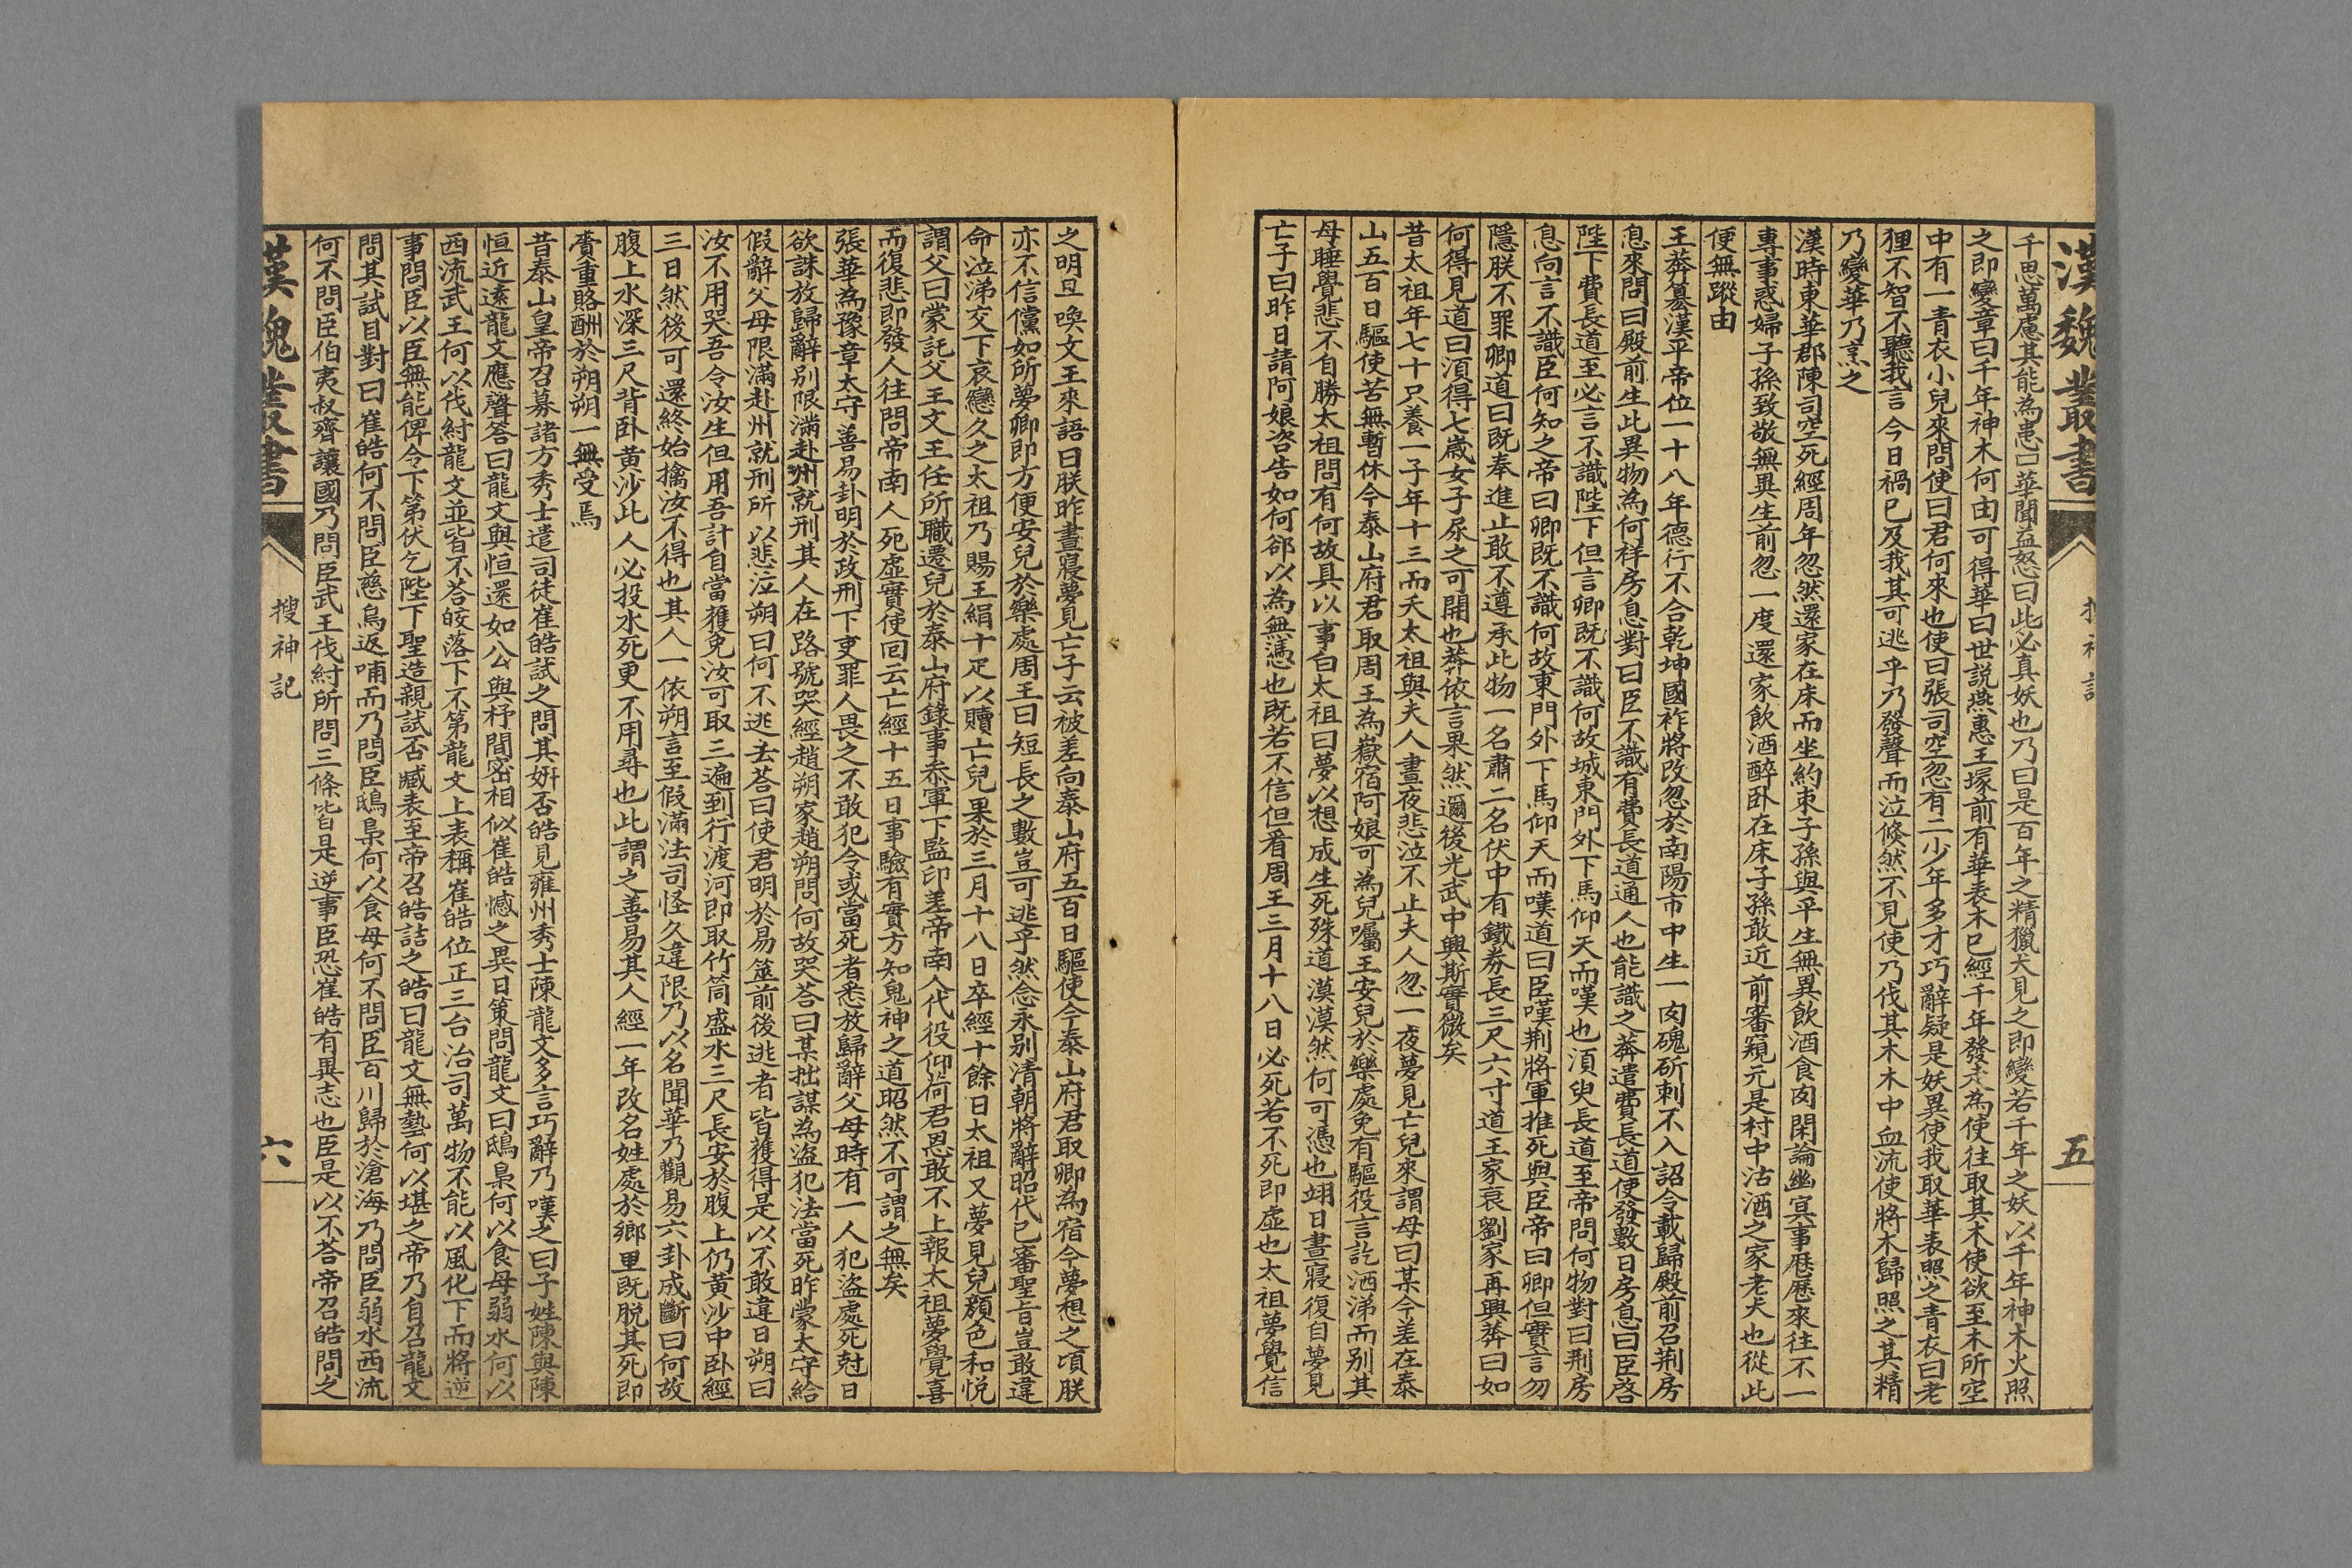 漢魏叢書
搜神記
五
千思萬慮其能為患口華聞益怒曰此必真妖也乃曰是百年之精獵犬見之即變若千年之妖以千年神木火照
之即變章曰千年神木何由可得華曰世說燕惠王塚前有華表木已經千年發木為使往取其木使欲至木所空
中有一青衣小兒來問使曰君何來也使曰張司空忽有二少年多才巧辭疑是妖異使我取華表照之青衣曰老
狸不智不聽我言今日禍已及我其可逃乎乃發聲而泣倏然不見使乃伐其木木中血流使將木歸照之其精
乃變華乃烹之
漢時東華郡陳司空死經周年忽然還家在床而坐約束子孫與平生無異飲酒食肉閑論幽冥事歷歷來往不一
專事惑婦子孫致敬無異生前忽一度還家飲酒醉卧在床子孫敢近前審窺元是村中沽酒之家老犬也從此
便無蹤由
王莽篡漢平帝位一十八年德行不合乾坤國祚將改忽於南陽市中生一肉磈斫刺不入詔令載歸殿前召荆房
息來問曰殿前生此異物為何祥房息對曰臣不識有費長道通人也能識之莽遣費長道使發數日房息曰臣啓
陛下費長道至必言不識陛下但言卿既不識何故城東門外下馬仰天而嘆也須臾長道至帝問何物對曰荆房
息向言不識臣何知之帝曰卿既不識何故東門外下馬仰天而嘆道曰臣嘆荆將軍推死與臣帝曰卿但實言勿
隱朕不罪卿道曰既奉進止敢不遵承此物一名肅二名伏中有鐵券長三尺六寸道王家衰劉家再興莽曰如
何得見道曰須得七歲女子尿之可開也莽依言果然邇後光武中興斯實徵矣
昔太祖年七十只養一子年十三而夭太祖與夫人晝夜悲泣不止夫人忽一夜夢見亡兒來謂母曰某今差在泰
山五百日驅使苦無暫休今泰山府君取周王為嶽宿阿娘可為兒囑王安兒於樂處免有驅役言訖洒涕而别其
母睡覺悲不自勝太祖問有何故具以事白太祖曰夢以想成生死殊道漠漠然何可憑也翊日晝寢復自夢見
亡子曰昨日請阿娘咨告如何卻以為無憑也既若不信但看周王三月十八日必死若不死即虛也太祖夢覺信
之明旦喚文王來語曰朕昨晝寢夢見亡子云被差向泰山府五百日驅使今泰山府君取卿為宿今夢想之頃朕
亦不信儻如所夢卿即方便安兒於樂處周王曰短長之數豈可逃乎然念永别清朝將辭昭代已審聖旨豈敢違
命泣涕交下哀戀久之太祖乃賜王絹十疋以贖亡兒果於三月十八日卒經十餘日太祖又夢見兒顏色和悅
謂父曰蒙託父王文王任所職遷兒於泰山府錄事叅軍下監印差帝南人代役仰荷君恩敢不上報太祖夢覺喜
而復悲即發人往問帝南人死虛實使回云亡經十五日事驗有實方知鬼神之道昭然不可謂之無矣
張華為豫章太守善易卦明於政刑下吏罪人畏之不敢犯令或當死者悉放歸辭父母時有一人犯盜處死尅日
欲誅放歸辭别限滿赴州就刑其人在路號哭經趙朔家趙朔問何故哭答曰某拙謀為盜犯法當死昨蒙太守給
假辭父母限滿赴州就刑所以悲泣朔曰何不逃去荅曰使君明於易筮前後逃者皆獲得是以不敢違日朔曰
汝不用哭吾令汝生但用吾計自當獲免汝可取三遍到行渡河即取竹筒盛水三尺長安於腹上仍黄沙中卧經
三日然後可還終始擒汝不得也其人一依朔言至假滿法司怪久違限乃以名聞華乃觀易六卦成斷曰何故
腹上水深三尺背卧黄沙此人必投水死更不用尋也此謂之善易其人經一年改名姓處於鄉里既脫其死即
賷重賂酬於朔朔一無受焉
昔泰山皇帝召募諸方秀士遣司徒崔皓試之問其妍否皓見雍州秀士陳龍文多言巧辭乃嘆之曰子姓陳與陳
恒近遠龍文應聲答曰龍文與恒還如公與杼間密相似崔皓憾之異日策問龍文曰鴟梟何以食母弱水何以
西流武王何以伐紂龍文並皆不荅皎落下不第龍文上表稱崔皓位正三台治司萬物不能以風化下而將逆
事問臣以臣無能俾令下第伏乞陛下聖造親試否臧表至帝召皓詰之皓曰龍文無藝何以堪之帝乃自召龍文
問其試目對曰崔皓何不問臣慈烏返哺而乃問臣鴟梟何以食母何不問臣百川歸於滄海乃問臣弱水西流
何不問臣伯夷叔齊讓國乃問臣武王伐紂所問三條皆是逆事臣恐崔皓有異志也臣是以不荅帝召皓問之
漢魏叢書
搜神記
六